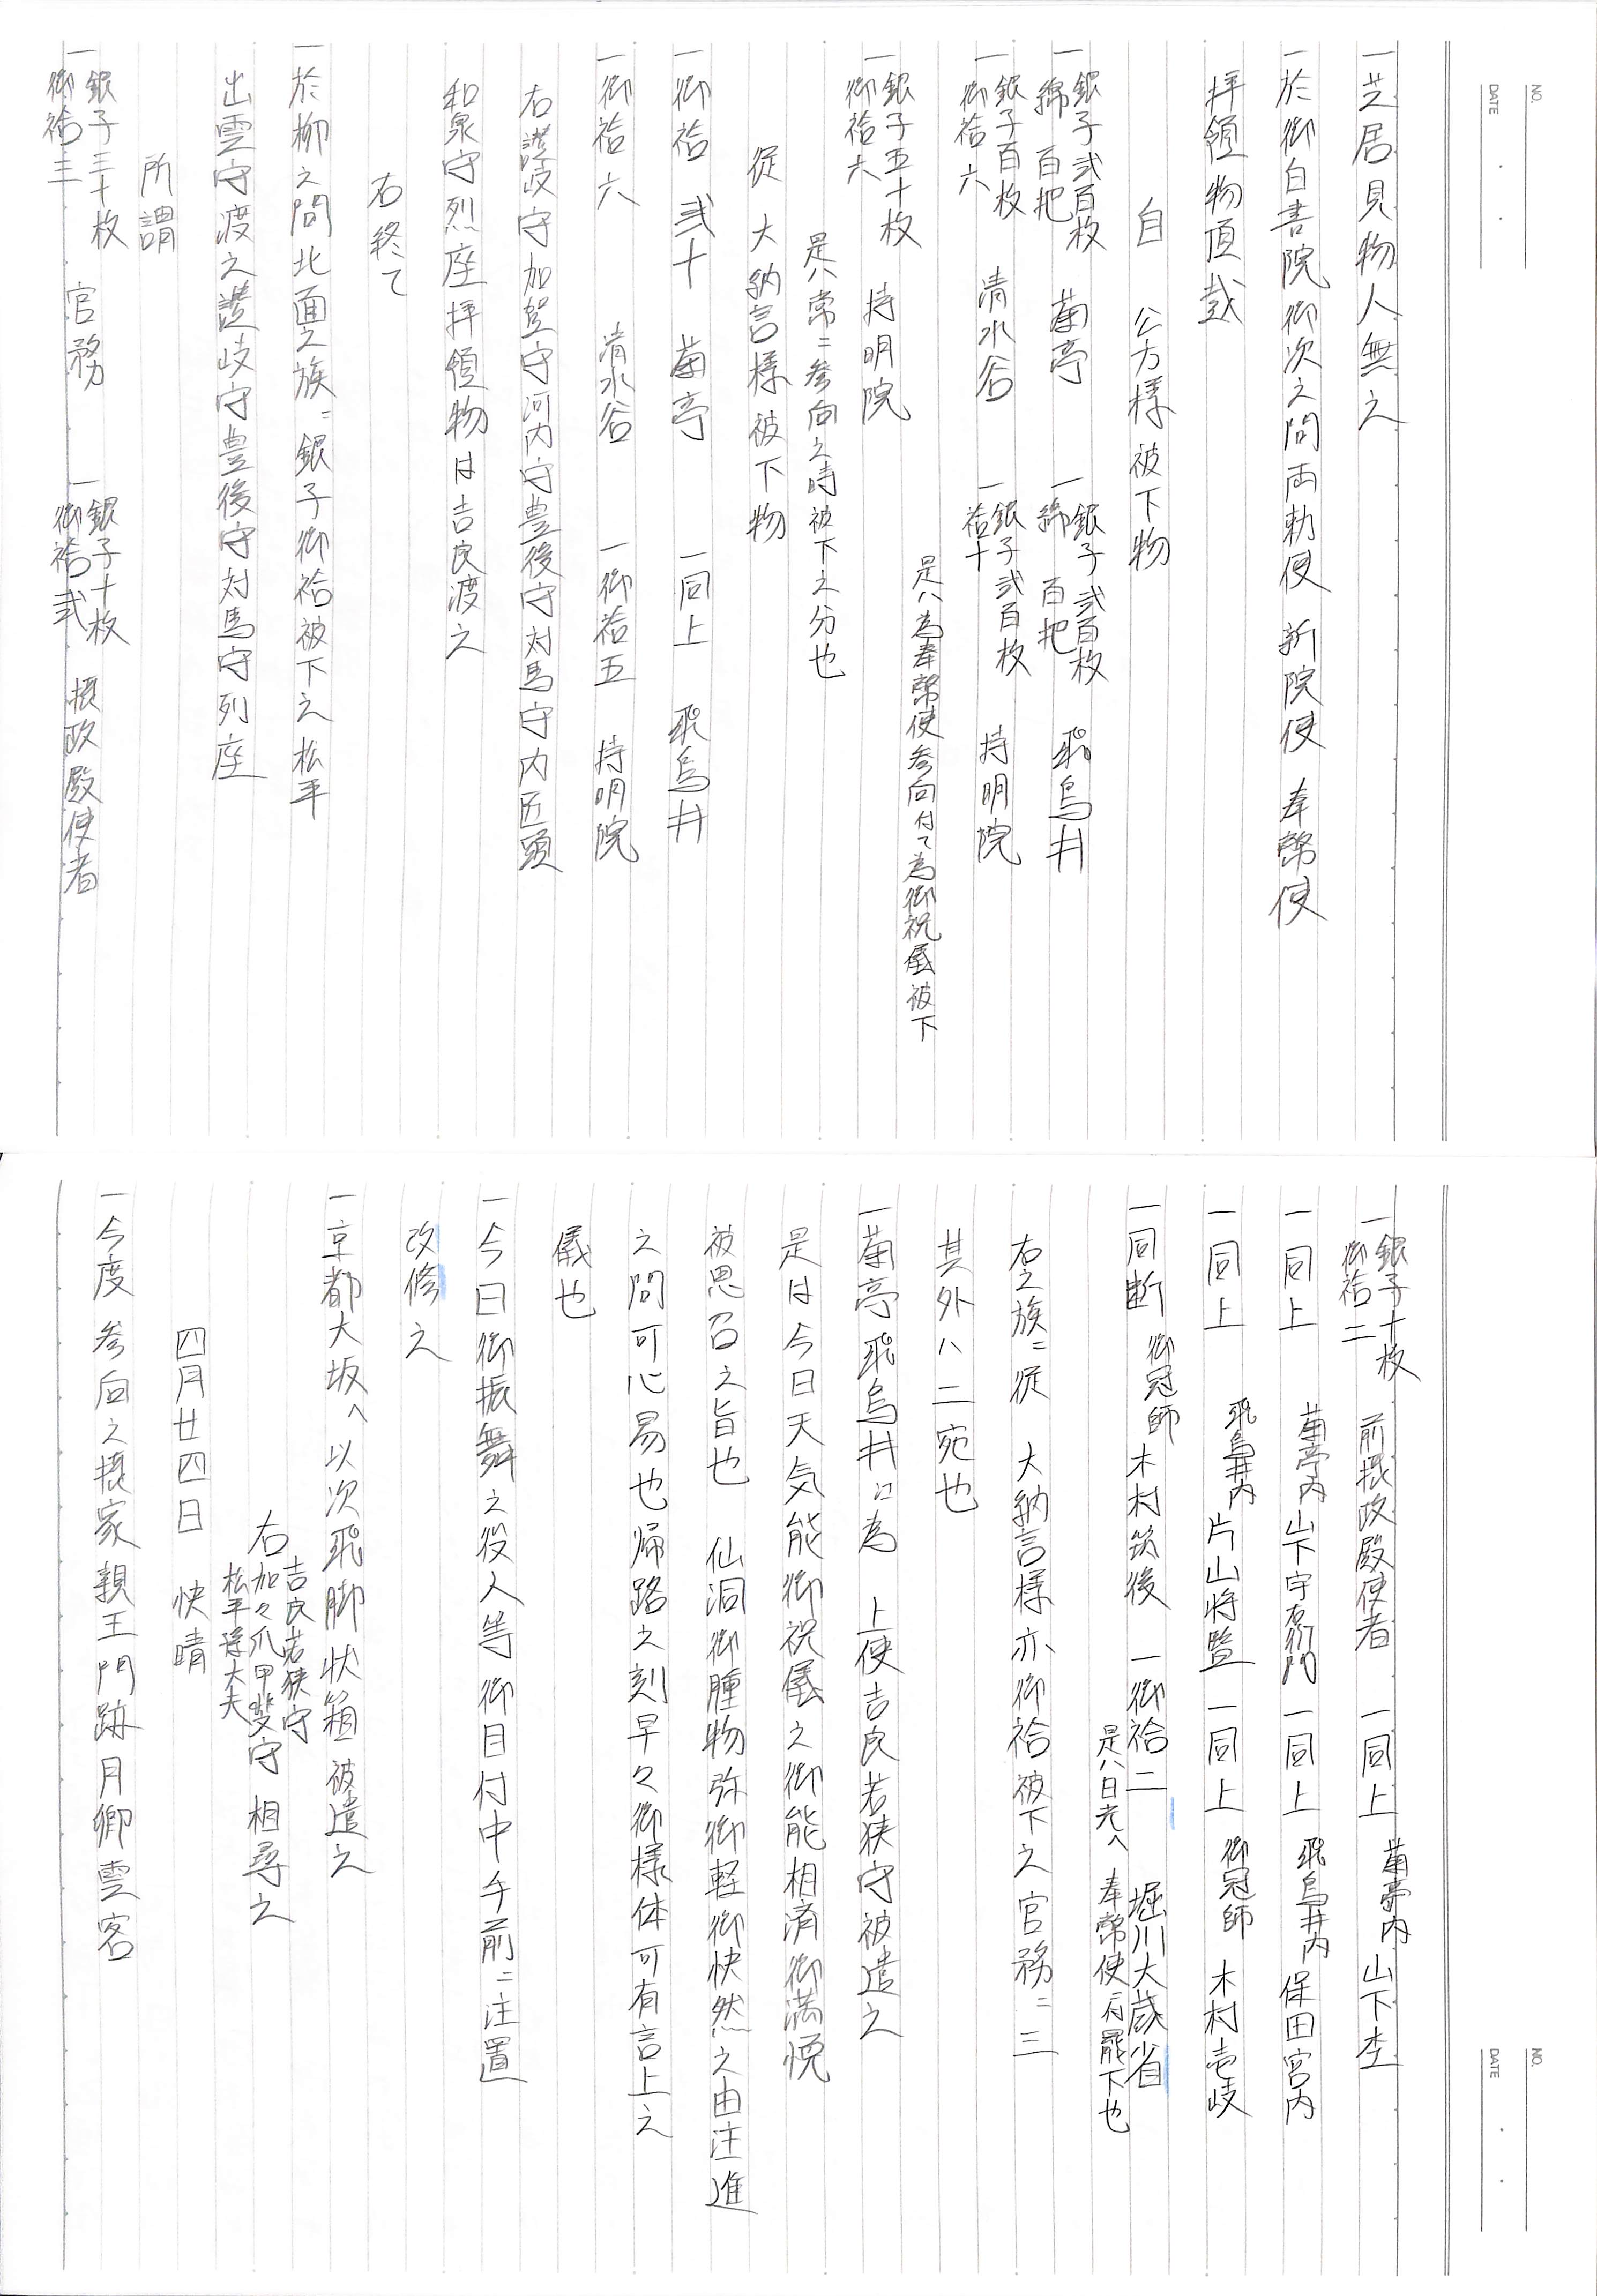 NO.
DATE
一芝居見物人無之
一於御白書院御次之間両勅使 新院使 奉幣使
拝領物頂戴
自 公方様被下物
一銀子弐百枚 綿百把 菊亭 一銀子弐百枚 綿百把 飛鳥井
一銀子百枚 御袷六 清水谷 一銀子弐百枚 袷十 持明院
是ハ為奉幣使参向付て為御祝儀被下
一銀子五十枚 御袷六 持明院
是ハ常ニ参向之時被下之分也
従 大納言様被下物
一御袷 弐十 菊亭 一同上 飛鳥井
一御袷 六 清水谷 一御袷五 持明院
右讃岐守加賀守河内守豊後守対馬守内匠頭
和泉守烈座拝領物は吉良渡之
右終て
一於柳之間北面之族ニ銀子御袷被下之松平
出雲守渡之讃岐守豊後守対馬守列座
所謂
一銀子三十枚 御袷三 官務 一銀子十枚 御袷弐 摂政殿使者
NO.
DATE
一銀子十枚 御袷二 前摂政殿使者 一同上 菊亭内 山下杢
一同上 菊亭内 山下宇右衛門 一同上 飛鳥井内 保田宮内
一同上 飛鳥井内 片山将監 一同上 御冠師 木村壱岐
一同断 御冠師 木村筑後 一御袷二 堀川大蔵省
是ハ日光へ奉幣使ニ付罷下也
右之族ニ従 大納言様亦御袷被下之官務ニ三
其外ハ二宛也
一菊亭飛鳥井江為 上使吉良若狭守被遣之
是は今日天気能御祝儀之御能相済御満悦
被思召之旨也 仙洞御腫物弥御軽御快然之由注進
之間可心易也帰路之刻早々御様体可有言上之
儀也
一今日御振舞之役人等御目付中手前ニ注置
改修之
一京都大坂へ以次飛脚状箱被遣之
右 吉良若狭守 加々爪甲斐守 松平隼大夫 相尋之
四月廿四日 快晴
一今度参向之摂家親王門跡月卿雲客